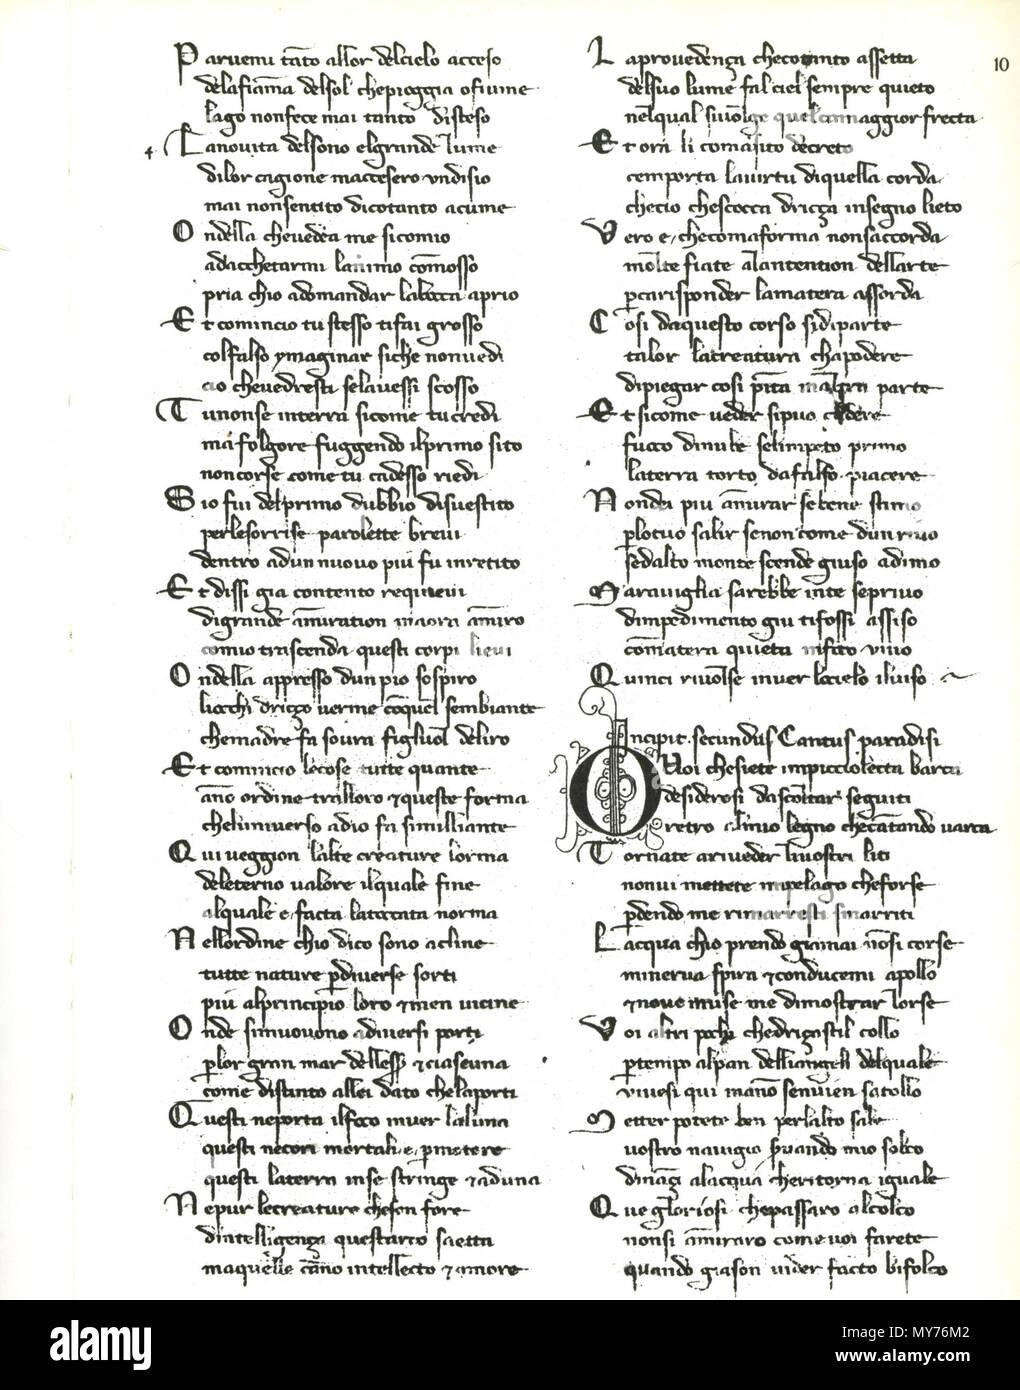 Parvemi tāto allor delcielo acceso
delafiāma delsol chepioggia ofiume
lago nonfece mai tanto disteso
Lanovita delsono elgrande lume
dilor cagione maccesero vndisio
mai nonsentito dicotanto acume
Ondella chevedea me sicomio
adacchetarmi lanimo cōmosso
pria chio adomandar labocca aprio
Et comincio tu stesso tifai grosso
colfalso ymaginar siche nonvedi
cio chevedresti selavessi scosso
Tu nonse interra sicome tu credi
ma folgore fuggendo ilprimo sito
noncorse come tu cadesso riedi
Sio fui delprimo dubbio disvestito
perlesorrise parolette brevi
dentro adun nuovo piu fu inretito
Et dissi gia contento requievi
digrande āmiration maora āmiro
comio trascenda questi corpi lievi
Ondella appresso dun pio sospiro
liocchi drizzo verme cōquel sembiante
chemadre fa sovra figliuol deliro
Et comincio lecose tutte quante
āno ordine tralloro ⁊ queste forma
cheluniverso adio fa simillante
Qui veggion lalte creature lorma
deleterno valore ilquale fine
alquale e facta latoccata norma
Nellordine chio dico sono acline
tutte nature ꝑdiverse sorti
piu alprincipio loro ⁊ men vicine
Onde simuovono adiversi porti
ꝑlor gran mar dellesse ⁊ ciascuna
come distinto allei dato chelaporti
Questi neporta ilfoco inver laluna
questi necori mortali e ꝑmotore
questi laterra inse stringe ⁊ aduna
Nepur lecreature cheson fore
dintelligenza questarco saetta
maquelle cāno intellecto ⁊ amore
Laprovedenza checotanto assetta
delsuo lume fal ciel sempre quieto
nelqual sivolge quelcāmaggior frecta
Et ora li comasito decreto
cemporta lavirtu diquella corda
checio chescocca drizza insegno lieto
Vero e checomaforma nonsaccorda
molte fiate alantention dellarte
ꝑcarisponder lamatera assorda
Cosi daquesto corso sidiparte
talor lacreatura chapodere
dipiegar cosi pīta in altra parte
Et sicome veder sipuo cadere
fuoco dinube selimpeto primo
laterra torto dafalso piacere
Nonda piu āmirar sebene stimo
ꝑlotuo salir senon come dun rivo
sedalto monte scende giuso adimo
Maraviglia sarebbe inte seprivo
dimpedimento giu tifossi assiso
comatera quieta infoco vivo
Quinci rivolse inver locielo ilviso
Incipit secundus Cantus paradisi
O Voi chesiete impiccioletta barca
desiderosi dascoltar seguiti
retro almio legno checātando varca
Tornate ariveder livostri liti
nonvi mettete inpelago cheforse
ꝑdendo me rimarresti smarriti
Lacqua chio prendo giamai nōsi corse
minerva spira ⁊ conducemi apollo
⁊ nove muse me dimostrar lorse
Voi altri pochi chedrizzastil collo
ꝑtempo alpan delliangeli delquale
vivesi qui manō senvien satollo
Metter potete ben perlalto sale
vostro navigio servando mio solco
dināzi alacqua cheritorna iguale
Que gloriosi chepassaro alcolco
nonsi āmiraro come voi farete
quando giason vider facto bifolco
10
alamy
Image ID: MY76M2
www.alamy.com